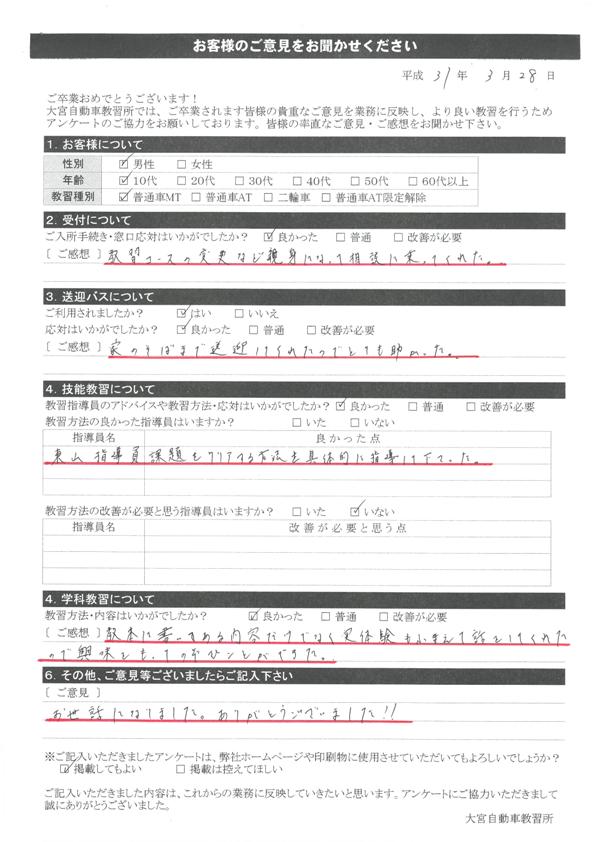 お客様のご意見をお聞かせください
平成 31 年 3 月 28 日
ご卒業おめでとうございます！
大宮自動車教習所では、ご卒業されます皆様の貴重なご意見を業務に反映し、より良い教習を行うため
アンケートのご協力をお願いしております。皆様の率直なご意見・ご感想をお聞かせ下さい。
1. お客様について
性別 ☑ 男性 □ 女性
年齢 ☑ 10代 □ 20代 □ 30代 □ 40代 □ 50代 □ 60代以上
教習種別 ☑ 普通車MT □ 普通車AT □ 二輪車 □ 普通車AT限定解除
2. 受付について
ご入所手続き・窓口応対はいかがでしたか？ ☑ 良かった □ 普通 □ 改善が必要
[ ご感想 ] 教習コースの変更など親身になって相談に乗ってくれた。
3. 送迎バスについて
ご利用されましたか？ ☑ はい □ いいえ
応対はいかがでしたか？ ☑ 良かった □ 普通 □ 改善が必要
[ ご感想 ] 家のそばまで送迎してくれたのでとても助かった。
4. 技能教習について
教習指導員のアドバイスや教習方法・応対はいかがでしたか？ ☑ 良かった □ 普通 □ 改善が必要
教習方法の良かった指導員はいますか？ □ いた □ いない
指導員名 良かった点
東山 指導員 課題をクリアする方法を具体的に指導して下さった。
教習方法の改善が必要と思う指導員はいますか？ □ いた ☑ いない
指導員名 改善が必要と思う点
4. 学科教習について
教習方法・内容はいかがでしたか？ ☑ 良かった □ 普通 □ 改善が必要
[ ご感想 ] 教本に書いてある内容だけでなく実体験もふまえて話をしてくれた
ので興味をもってのぞむことができた。
6. その他、ご意見等ございましたらご記入下さい
[ ご意見 ]
お世話になりました。ありがとうございました!!
※ご記入いただきましたアンケートは、弊社ホームページや印刷物に使用させていただいてもよろしいでしょうか？
☑ 掲載してもよい □ 掲載は控えてほしい
ご記入いただきました内容は、これからの業務に反映していきたいと思います。アンケートにご協力いただきまして
誠にありがとうございました。
大宮自動車教習所